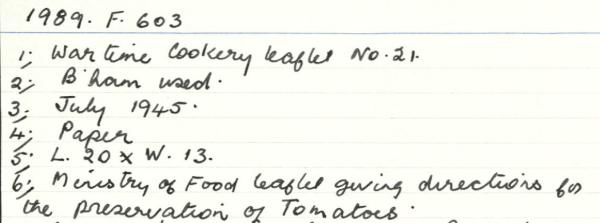 1989. F. 603
1; Wartime Cookery leaflet No. 21.
2; B'ham used.
3. July 1945.
4; Paper
5; L. 20 x W. 13.
6; Ministry of Food leaflet giving directions for
the preservation of Tomatoes.